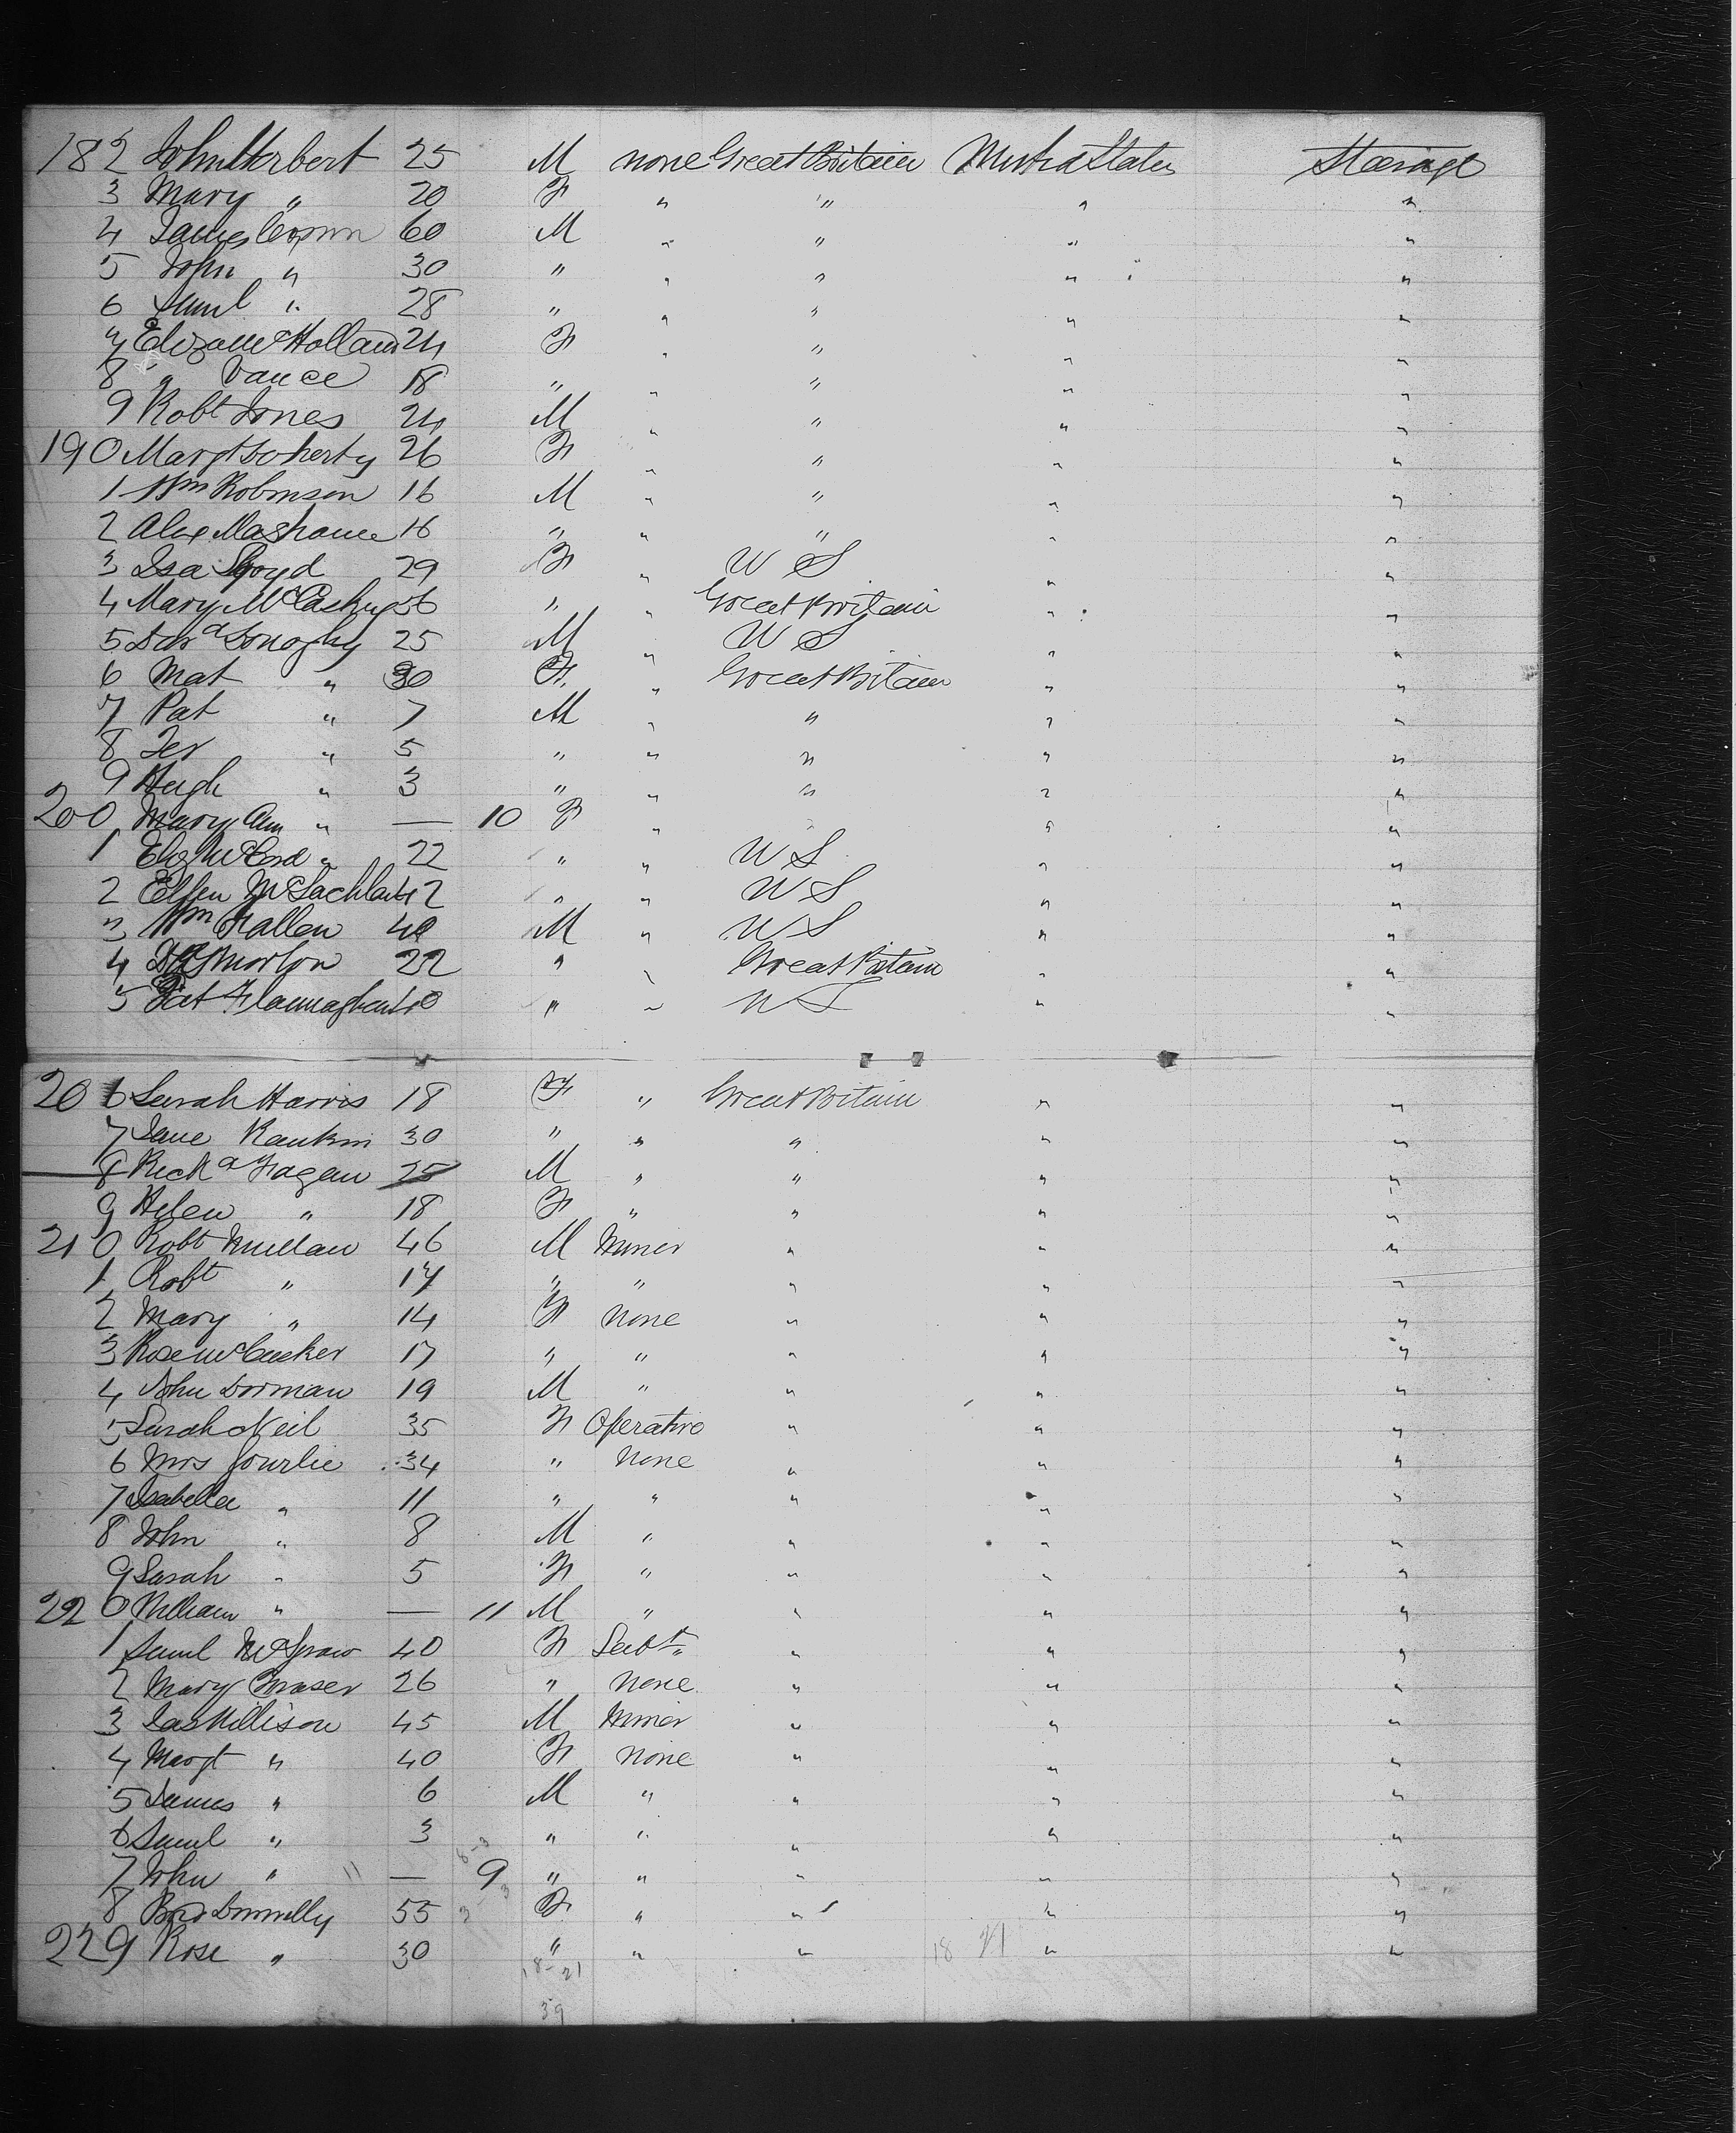 182 John Herbert 25 M none Great Britain United States Steerage
3 Mary " 20 F " " " "
4 James 60 M " " " "
5 John " 30 " " " " "
6 Saml " 28 " " " " "
7 Eliza McHolland 24 F " " " "
8 " Vance 18 " " " " "
9 Robt Jones 24 M " " " "
190 Margt Doherty 26 F " " " "
1 Wm Robinson 16 M " " " "
2 Alex 16 " " " " "
3 Isa 29 F " U S " "
4 Mary McCaskey 56 " " Great Britain " "
5 Donaghy 25 M " U S " "
6 Mat " 30 F " Great Britain " "
7 Pat " 7 M " " " "
8 Jer " 5 " " " " "
9 Hugh " 3 " " " " "
200 Mary Ann " — 10 F " " " "
1 Eliz McCord " 22 " " U S " "
2 Ellen McLachlan 42 " " U S " "
3 Wm Fallen 40 M " U S " "
4 Morton 22 " " Great Britain " "
5 Pat Flannaghan 40 " " U S " "
206 Sarah Harris 18 F " Great Britain " "
7 Jane Rankin 30 " " " " "
8 Richd Fagan 25 M " " " "
9 Helen " 18 F " " " "
210 Robt Mullan 46 M Miner " " "
1 Robt " 17 " " " " "
2 Mary " 14 F none " " "
3 Rose McCusker 17 " " " " "
4 John Dorman 19 M " " " "
5 Sarah Neil 35 F Operative " " "
6 Mrs Gourlie 34 " None " " "
7 Isabella " 11 " " " " "
8 John " 8 M " " " "
9 Sarah " 5 F " " " "
220 William " — 11 M " " " "
1 Saml 40 F " " "
2 Mary Fraser 26 " none " " "
3 Jas Willison 45 M Miner " " "
4 Margt " 40 F none " " "
5 James " 6 M " " " "
6 Saml " 3 " " " " "
7 John " — 9 " " " " "
8 Donnelly 55 F " " " "
229 Rose " 30 " " " " "
18 21
18-21
39